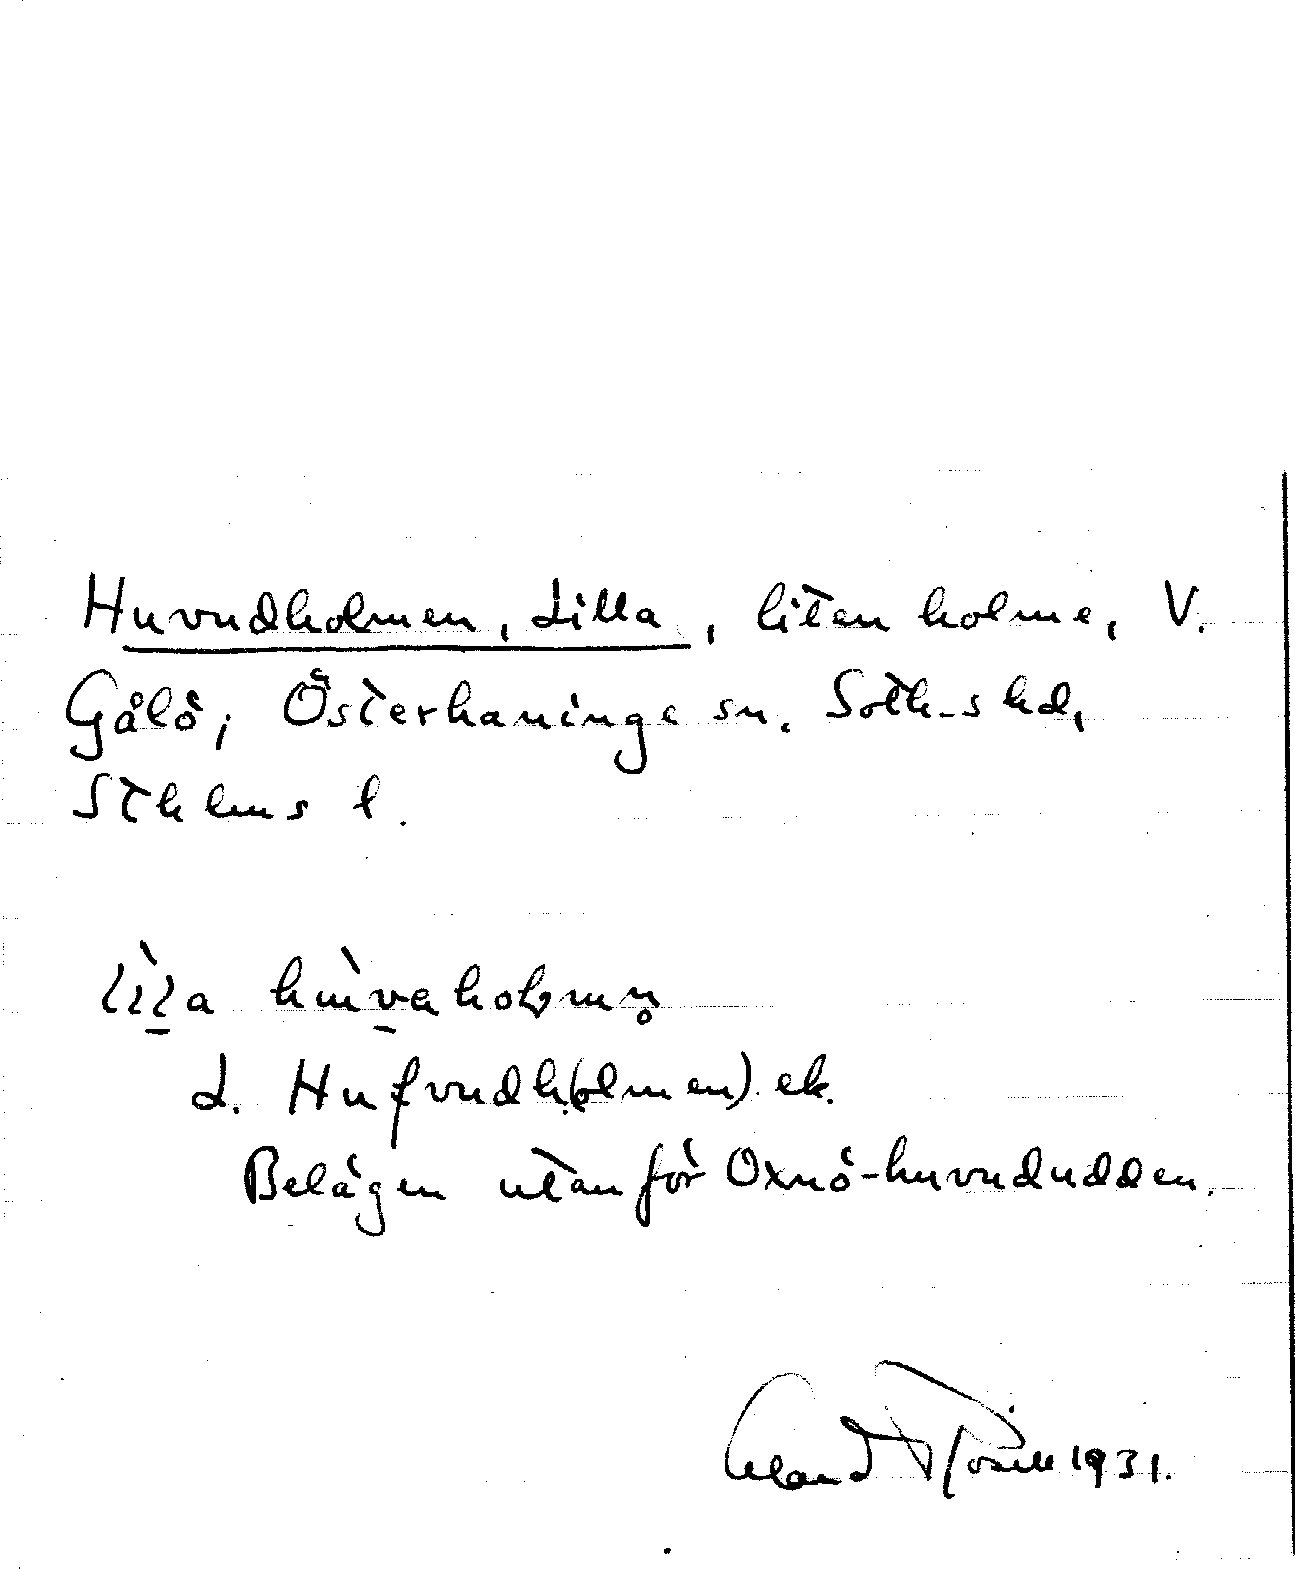 Huvudholmen, Lilla, liten holme, V.
Gålö, Österhaninge sn. Soth-s hd,
Sthlms l.
lìla hùvaholmn̥
L. Hufvudh(olmen) ek.
Belägen utanför Oxnö-huvududden.
Rosell 1931.